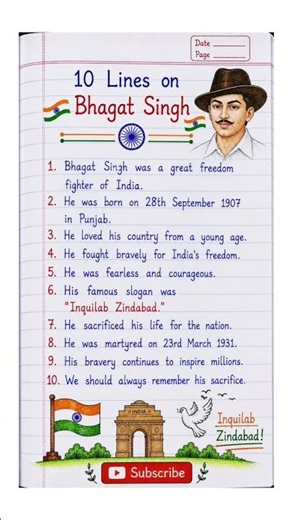 Date
Page
10 Lines on
Bhagat Singh
1. Bhagat Singh was a great freedom
fighter of India.
2. He was born on 28th September 1907
in Punjab.
3. He loved his country from a young age.
4. He fought bravely for India's freedom.
5. He was fearless and courageous.
6. His famous slogan was
"Inquilab Zindabad."
7. He sacrificed his life for the nation.
8. He was martyred on 23rd March 1931.
9. His bravery continues to inspire millions.
10. We should always remember his sacrifice.
INDIA
Inquilab
Zindabad!
Subscribe